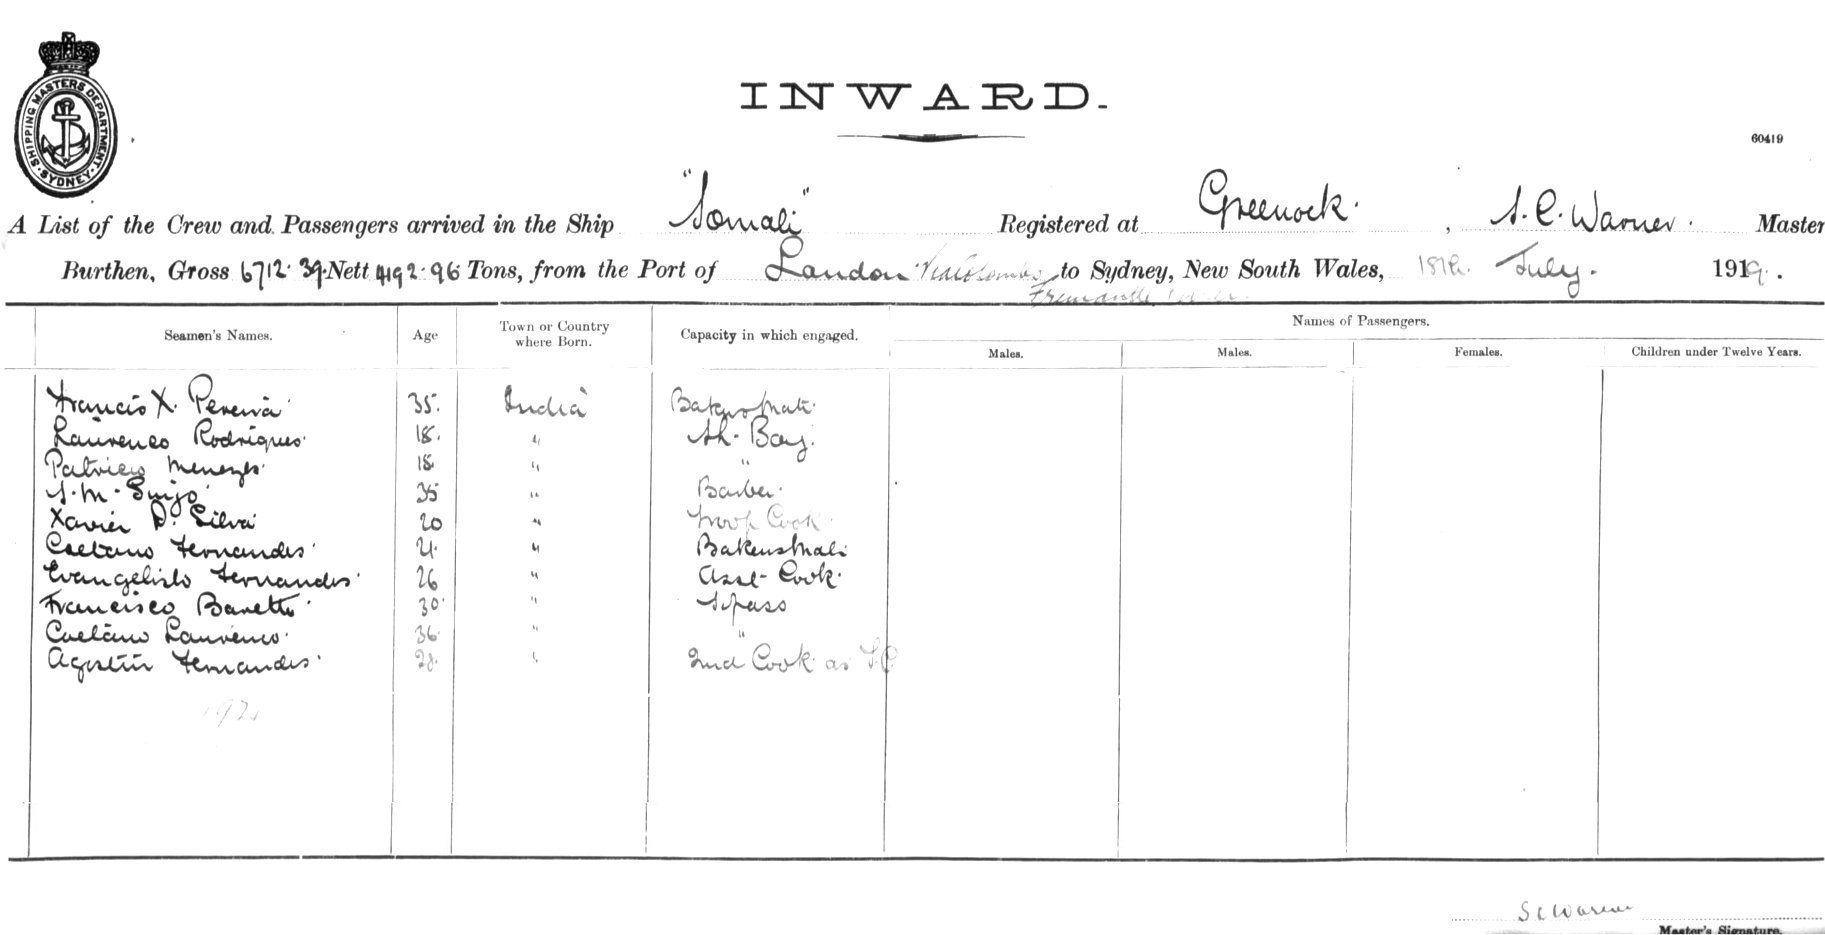 SHIPPING MASTERS DEPARTMENT. SYDNEY.
INWARD.
60419
A List of the Crew and Passengers arrived in the Ship "Somali" Registered at Greenock. , S. C. Warner. Master
Burthen, Gross 6712.39 Nett 4192.96 Tons, from the Port of London Via Colombo to Sydney, New South Wales, 18th. July. 1919.
Fremantle
Seamen's Names. Age Town or Country where Born. Capacity in which engaged. Names of Passengers.
Males. Males. Females. Children under Twelve Years.
Francis X. Pereira 35. India Bakers Mate
Laurenco Rodrigues. 18. " Boy.
Menezes. 18. " "
S. M. 35 " Barber.
Xavier D. Silva 20 " Troop Cook.
Caetano Fernandes. 21. " Bakers Mate
Evangelisto Fernandes. 26 " Asst. Cook.
Francisco Baretto. 30. " Topass
Caetano Laurenco. 36. " "
Agostin Fernandes. 28. " 2nd Cook as
S C Warner
Master's Signature.